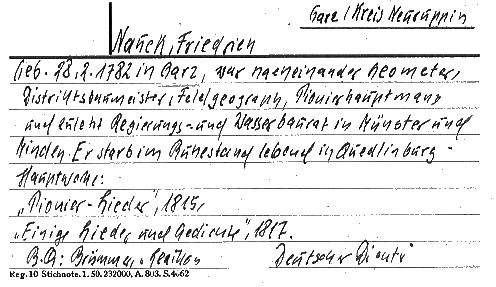 Garz / Kreis Neuruppin
Nauck, Friedrich
Geb. 28.2.1782 in Garz, war nacheinander Geometer,
Distriktsbaumeister, Feldgeograph, Pionierhauptmann
und zuletzt Regierungs- und Wasserbaurat in Münster und
Minden. Er starb im Ruhestand lebend in Quedlinburg -
Hauptwerke:
„Pionier-Lieder", 1815,
„Einige Lieder und Gedichte", 1817.
B.A: Brümmer, Lexikon Deutscher Dichter
Reg. 10 Stichnote. 1. 50. 232000, A. 803. S. 4. 62